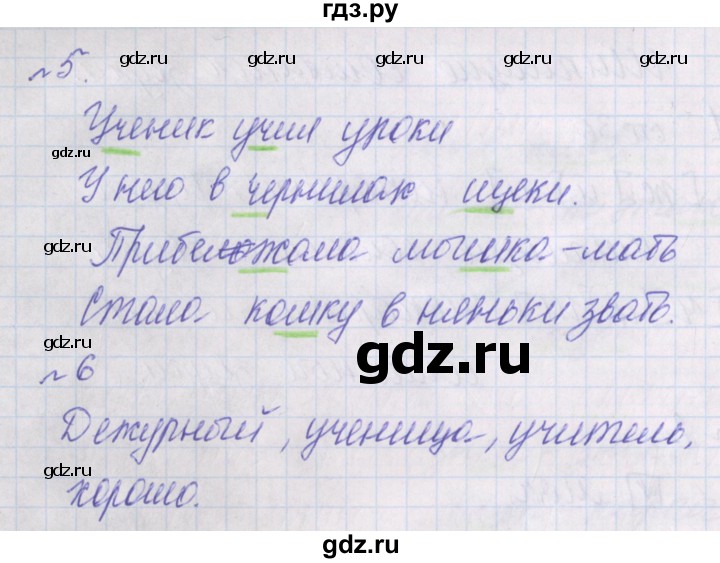 гдз.ру
gdz.ru gdz.ru gdz.ru
№5.
Ученик учил уроки
gdz.ru
У него в чернилах щеки.
gdz.ru gdz.ru gdz.ru
Прибежала мышка-мать
Стала кошку в няньки звать.
gdz.ru
№6
gdz.ru
Дежурный, ученица, учитель,
gdz.ru gdz.ru gdz.ru
хорошо.
gdz.ru